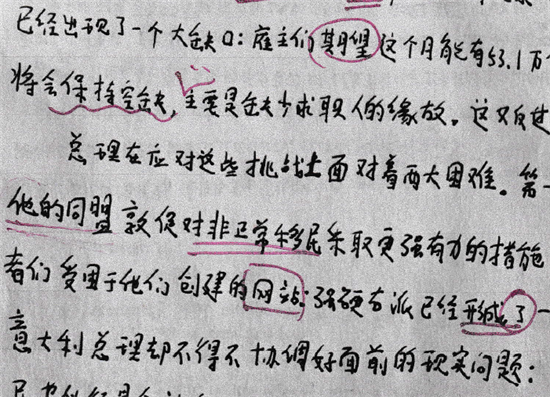 已经出现了一个大缺口：雇主们期望这个月能有53.1万个
将会保持空缺，主要是缺少求职人的缘故。这又反过
总理在应对这些挑战上面对着两大困难。第一
他的同盟敦促对非正常移民采取更强有力的措施
者们受困于他们创建的网站：强硬右派已经形成了一
意大利总理却不得不协调好面前的现实问题：